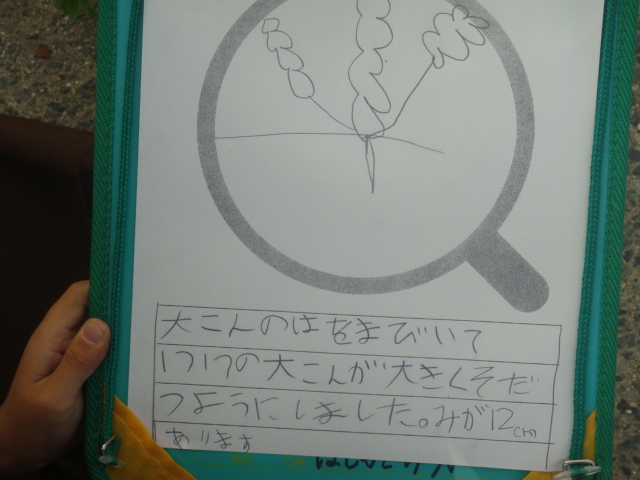 大こんのはをまびいて
1つ1つの大こんが大きくそだ
つようにしました。みが12cm
あります